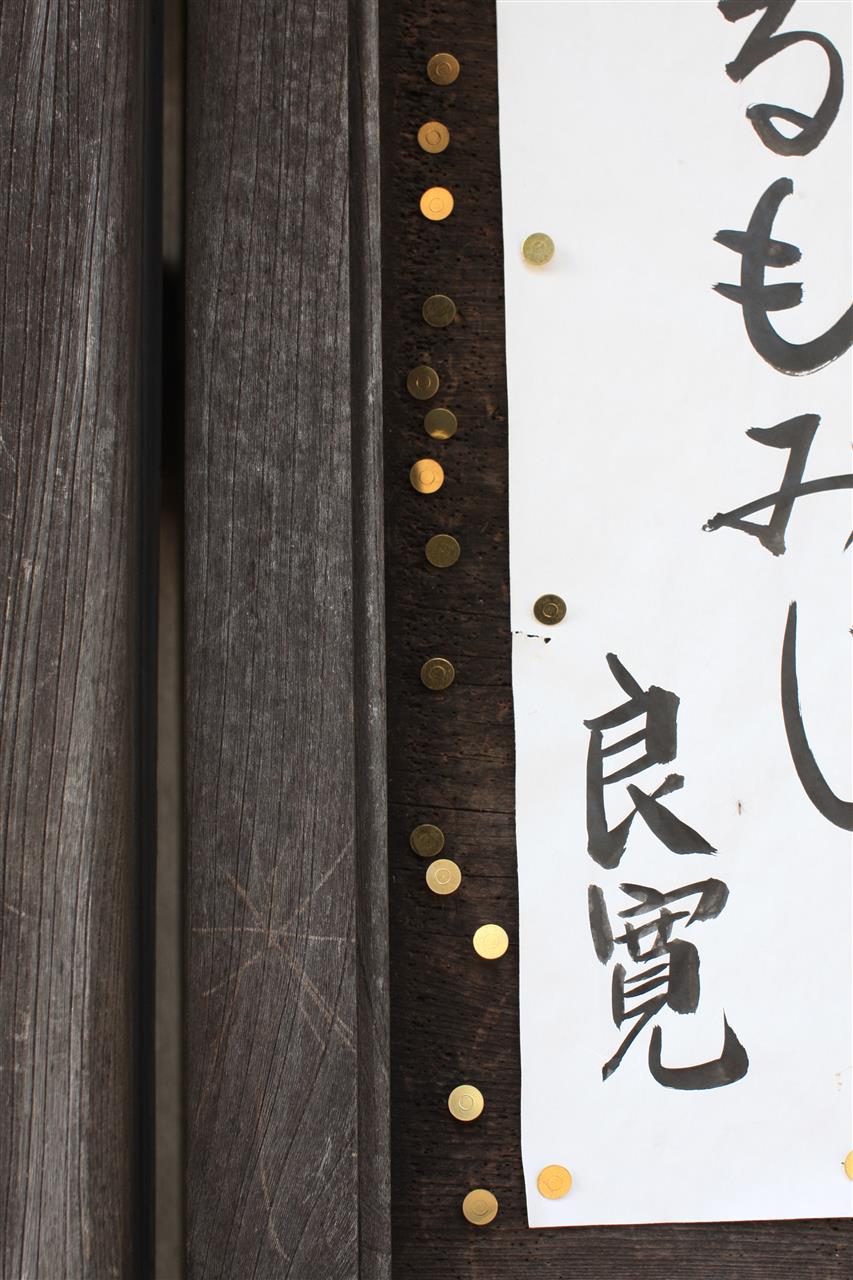 るもみじ
良寛